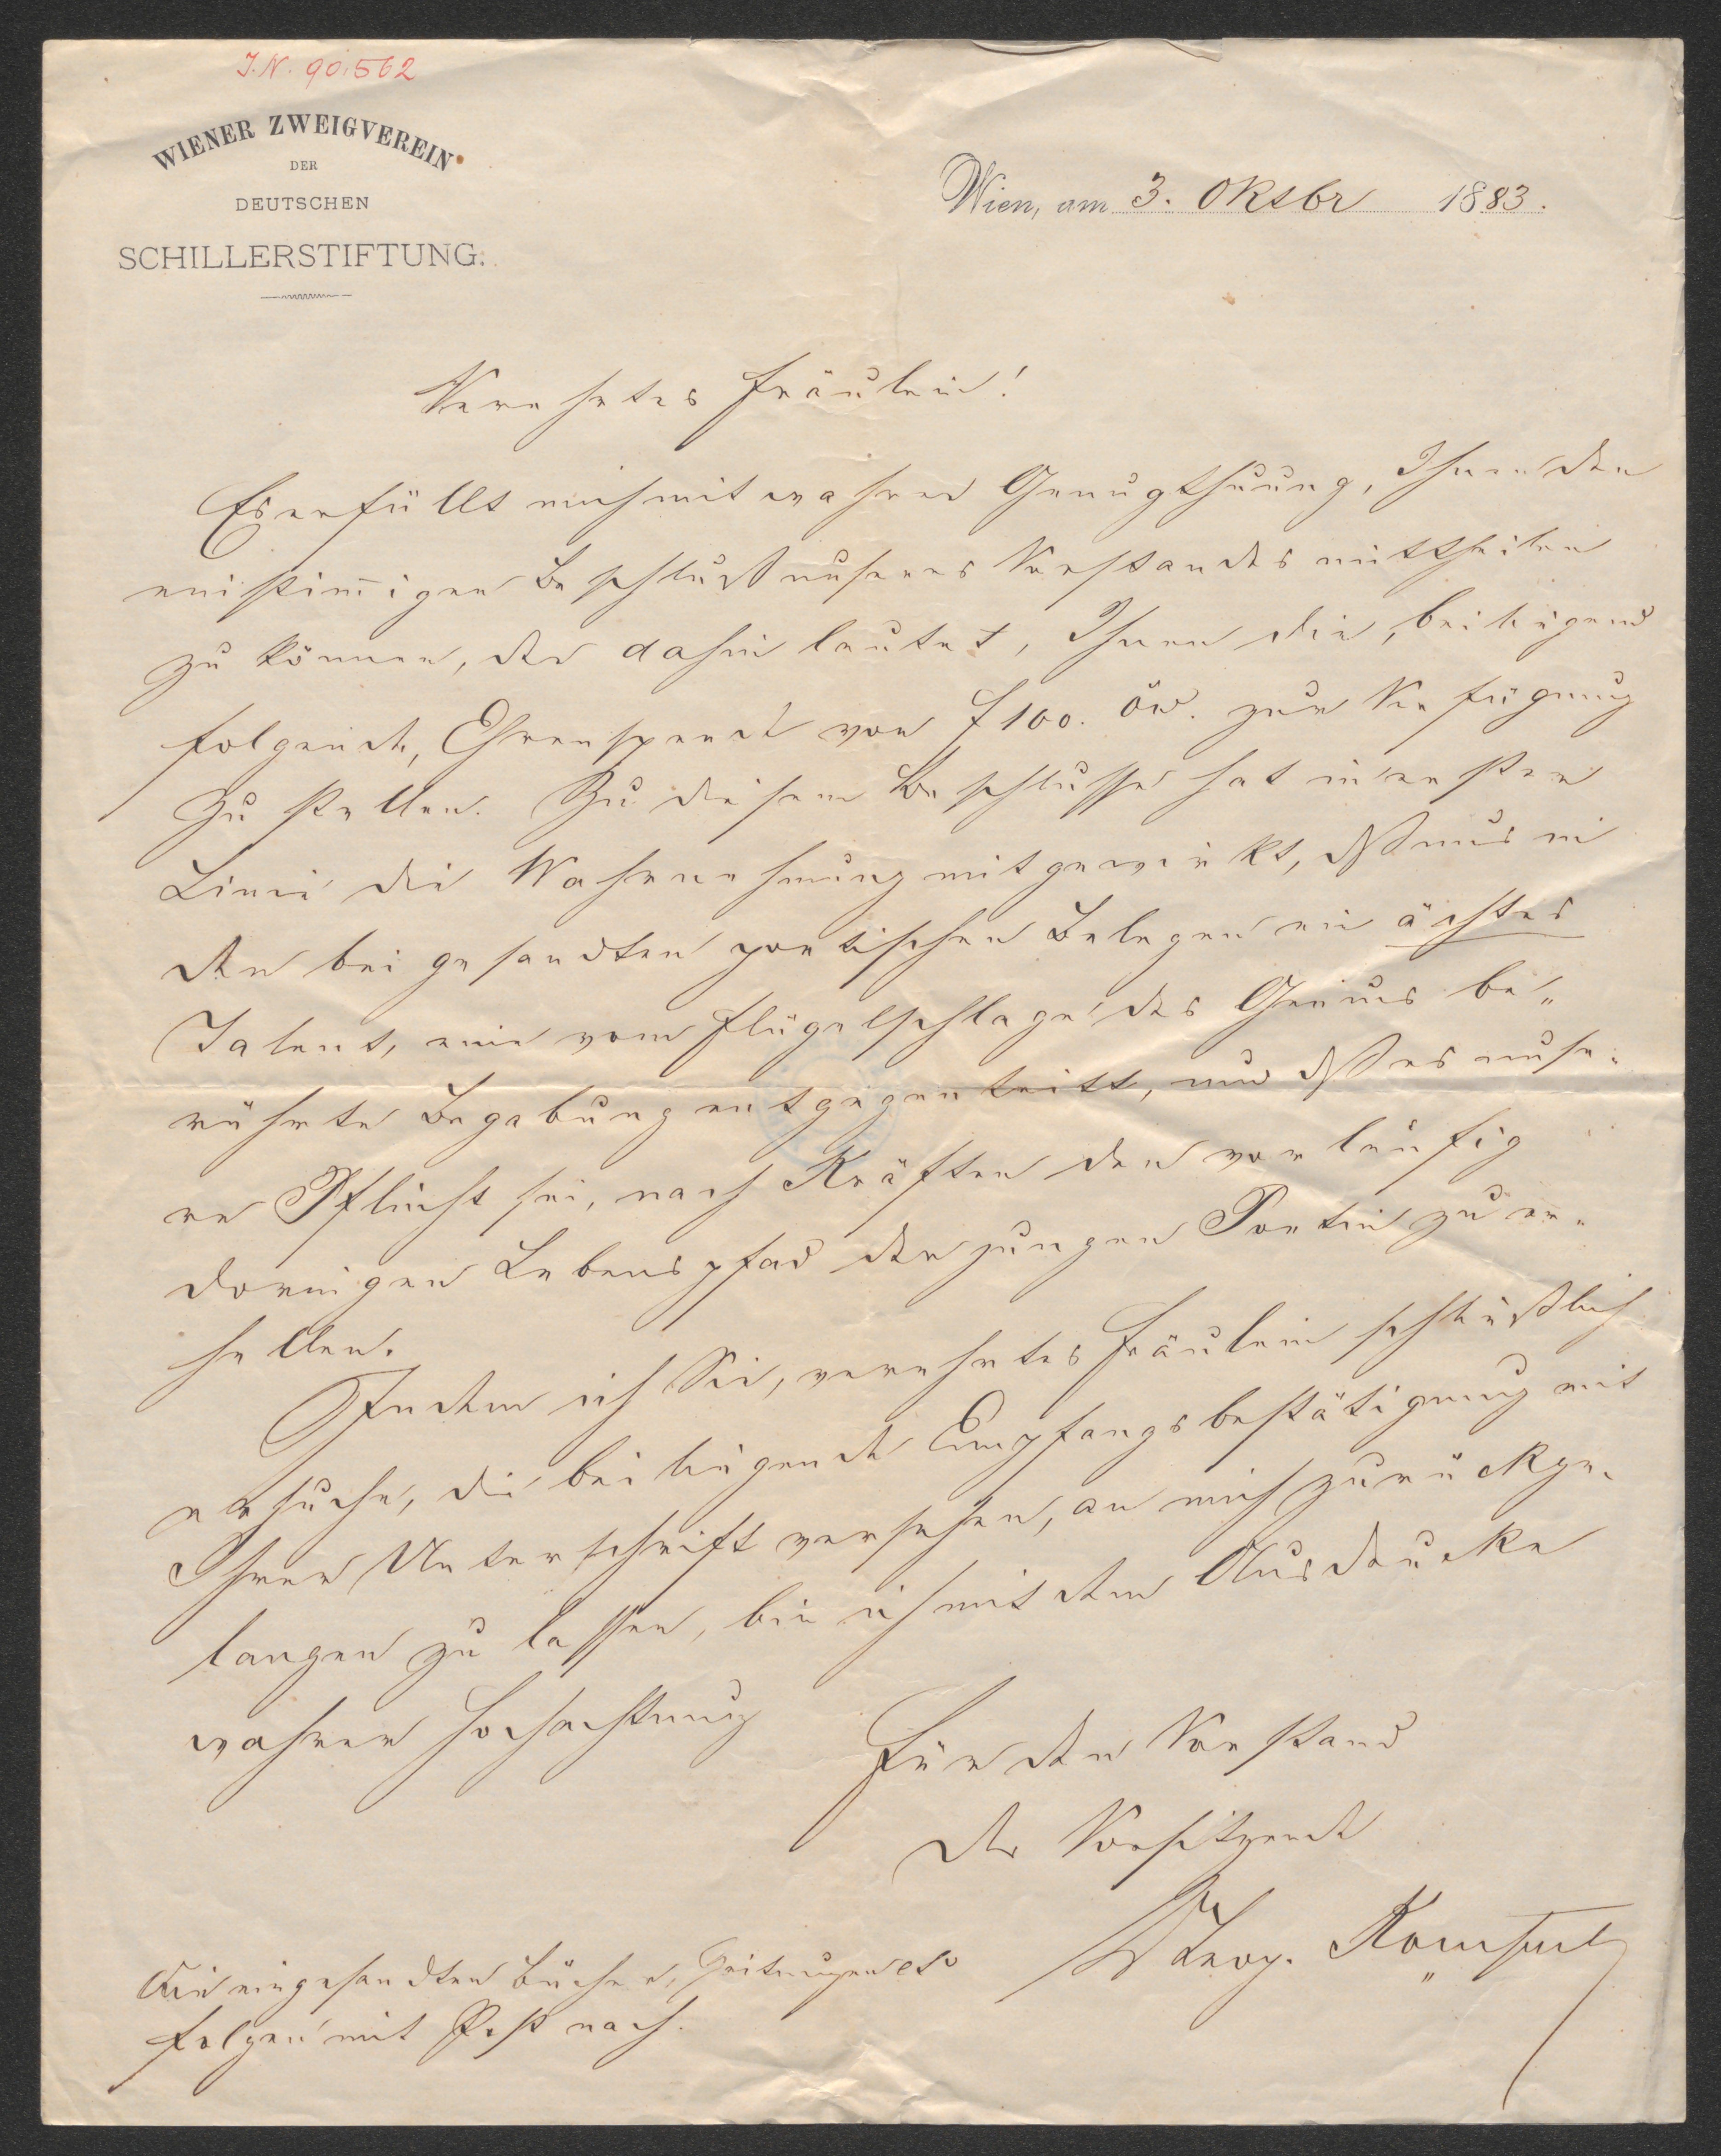 J.N. 90.562
WIENER ZWEIGVEREIN
DER
DEUTSCHEN
SCHILLERSTIFTUNG.
Wien, am 3. Oktobr 1883.
Verehrtes Fräulein!
Es erfüllt mich mit wahrer Genugthuung, Ihnen den
einstim̄igen Beschluß unseres Vorstandes mittheilen
zu können, der dahin lautet, Ihnen die, beiliegend
folgende, Ehrenspende von f 100. öw. zur Verfügung
zu stellen. Zu diesem Beschlusse hat in erster
Linie die Wahrnehmung mitgewirkt, dß uns in
den beigesandten poetischen Belegen ein ächtes
Talent, eine vom Flügelschlage des Genius be„
rührte Begabung entgegentritt, und dß es unse„
re Pflicht sei, nach Kräften den vorläufig
dornigen Lebenspfad der jungen Poetin zu er„
hellen.
Indem ich Sie, verehrtes Fräulein schließlich
ersuche, die beiliegende Empfangsbestätigung mit
Ihrer Unterschrift versehen, an mich zurückge„
langen zu lassen, bin ich mit dem Ausdrucke
wahrer Hochachtung
Für den Vorstand
Der Vorsitzende
Dr Leop. Kompert
Die eingesandten Bücher, Zeitungen etc
folgen mit Post nach.